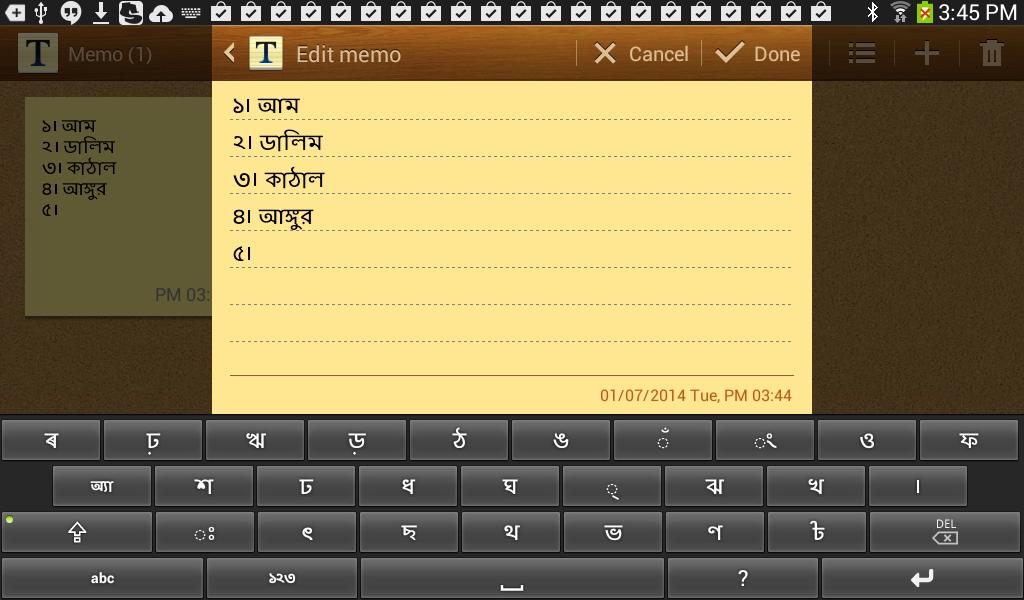 3:45 PM
Memo (1)
Edit memo
Cancel
Done
১। আম
২। ডালিম
৩। কাঠাল
৪। আঙ্গুর
৫।
PM 03:
১। আম
২। ডালিম
৩। কাঠাল
৪। আঙ্গুর
৫।
01/07/2014 Tue, PM 03:44
ৰ ঢ় ঋ ড় ঠ ঙ ঁ ং ও ফ
অ্যা শ ঢ ধ ঘ ্ ঝ খ ।
ঃ ৎ ছ থ ভ ণ ৳ DEL
abc ১২৩ ?